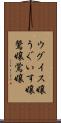 ウグイス嬢
うぐいす嬢
鶯嬢鴬嬢